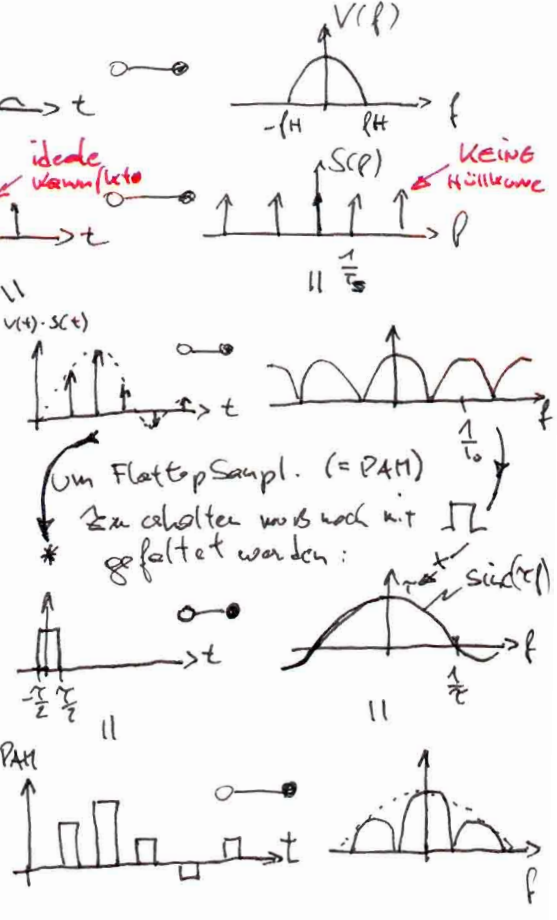 V(f)
t
-fH fH
f
ideale
Kammfkto
S(f)
KEINE
Hüllkurve
t
f
1/Ts
||
||
V(t)·S(t)
t
f
1/Ts
Um FlattopSampl. (= PAM)
zu erhalten muß noch mit
gefaltet werden:
*
x
τ
sinc(τf)
t
f
-τ/2 τ/2
1/τ
||
||
PAM
t
f